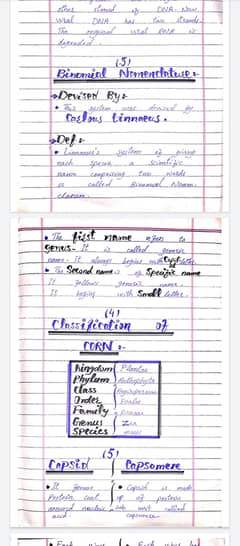 other strand of DNA. New
viral DNA has two strands.
The original viral RNA is
degraded.
(5)
Binomial Nomenclature:-
→ Devised By:-
• This system was devised by
Carlous Linnaeus.
→ Def:-
• Linnaeus's system of giving
each species a scientific
name comprising two words
is called Binomial Nomen-
clature.
• The first name refers to
genus. It is called generic
name. It always begins with Capital letter.
• The Second name is of Specific name
It follows generic name.
It begins with Small letter.
(4)
Classification of
CORN:-
Kingdom Plantae
Phylum
Class Angiospermae
Order Poales
Family Poaceae
Genus Zea
Species mays
(5)
Capsid Capsomere
• It Protein coat around nucleic acid
• Capsid is made up of protein sub unit called capsomeres.